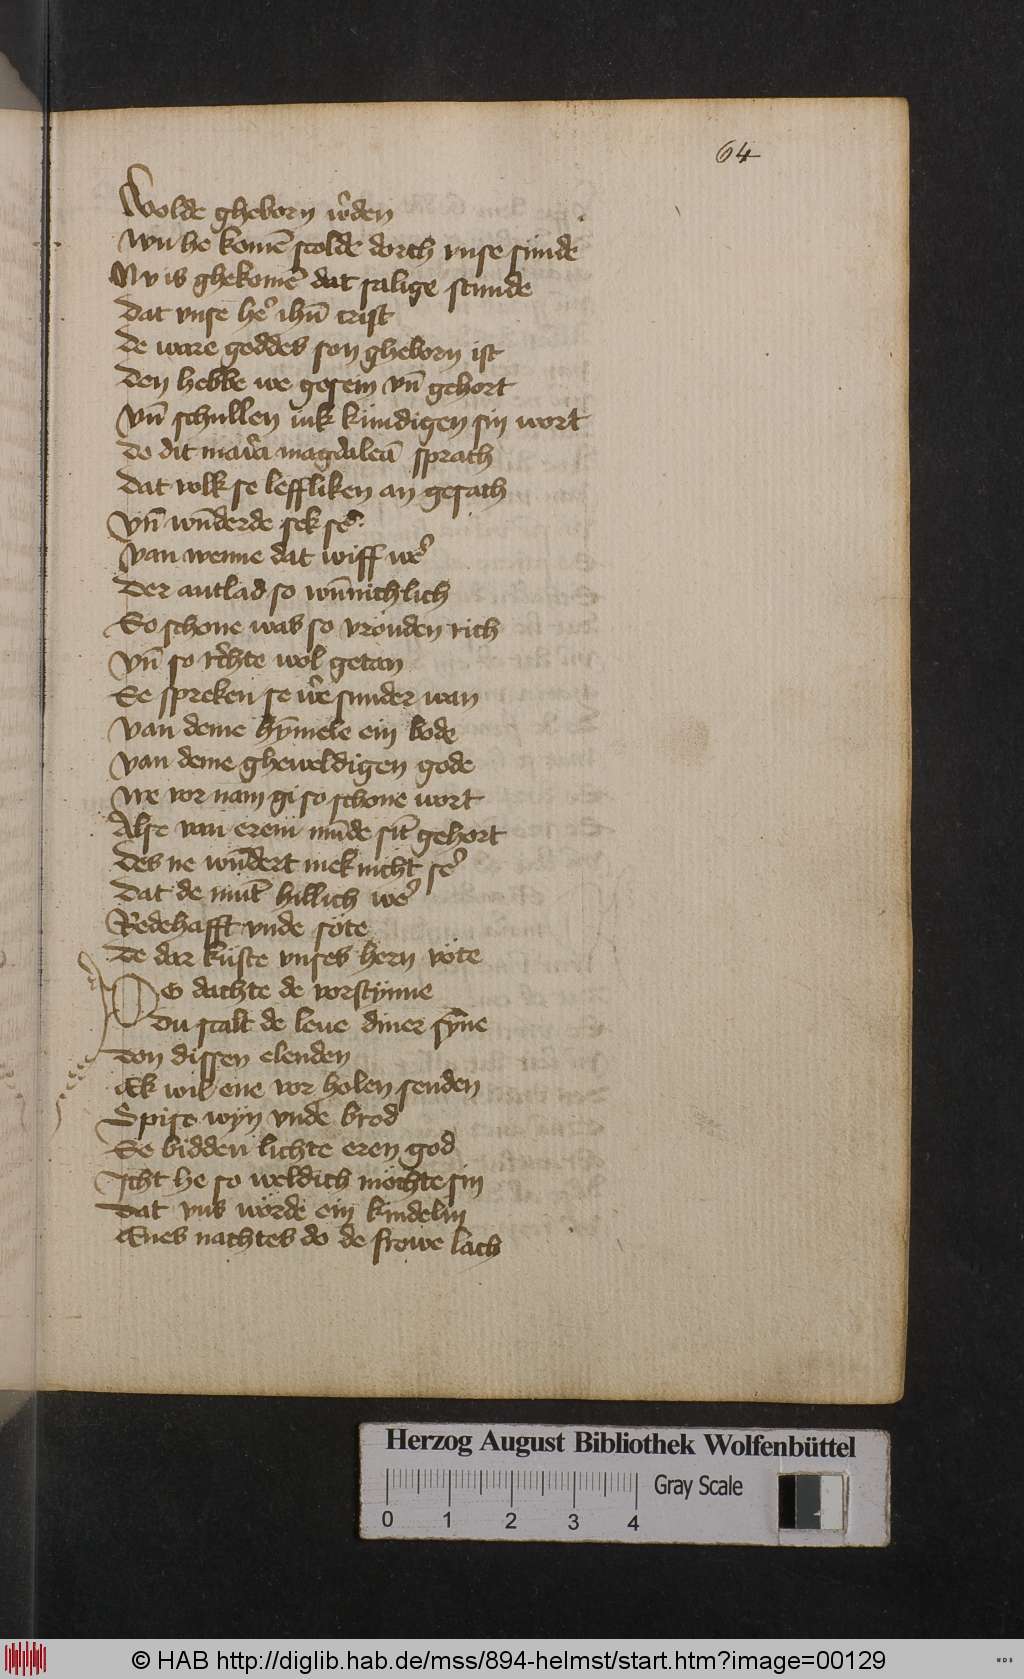 64
Wolde gheborn w̉den
Wu he komē scolde dorch vnse sunde
Nv is ghekomē dat salige stunde
Dat vnse he᷑ ihū crist
De ware goddes son gheborn ist
Den hebbe we gesein vn̄ gehort
Vn̄ schullen iuk kundigen sin wort
Do dit maria magdaleā sprach
Dat volk se leffliken an gesach
Vn̄ wūderde sek se᷑
Van wenne dat wiff we᷑
Der antlad so wūnichlich
So schone was so vrouden rich
Vn̄ so rechte wol getan
Se spreken se w̉e sunder wan
Van deme hȳmele ein bode
Van deme gheweldigen gode
We vor nam gi so schone wort
Alse van erem mūde sīt gehort
Des ne wūdert mek nicht se᷑
Dat de mūt hillich we᷑
Redehafft vnde söte
De dar kuste vnses hern vöte
Do dachte de vorstynne
Du scalt de leue diner sȳne
Don dissen elenden
Ek wil ene vor holen senden
Spise wyn vnde brod
Se bidden lichte eren god
Icht he so weldich mochte sin
Dat vns worde ein kindelin
Enes nachtes do de frowe lach
Herzog August Bibliothek Wolfenbüttel
0 1 2 3 4
Gray Scale
© HAB http://diglib.hab.de/mss/894-helmst/start.htm?image=00129